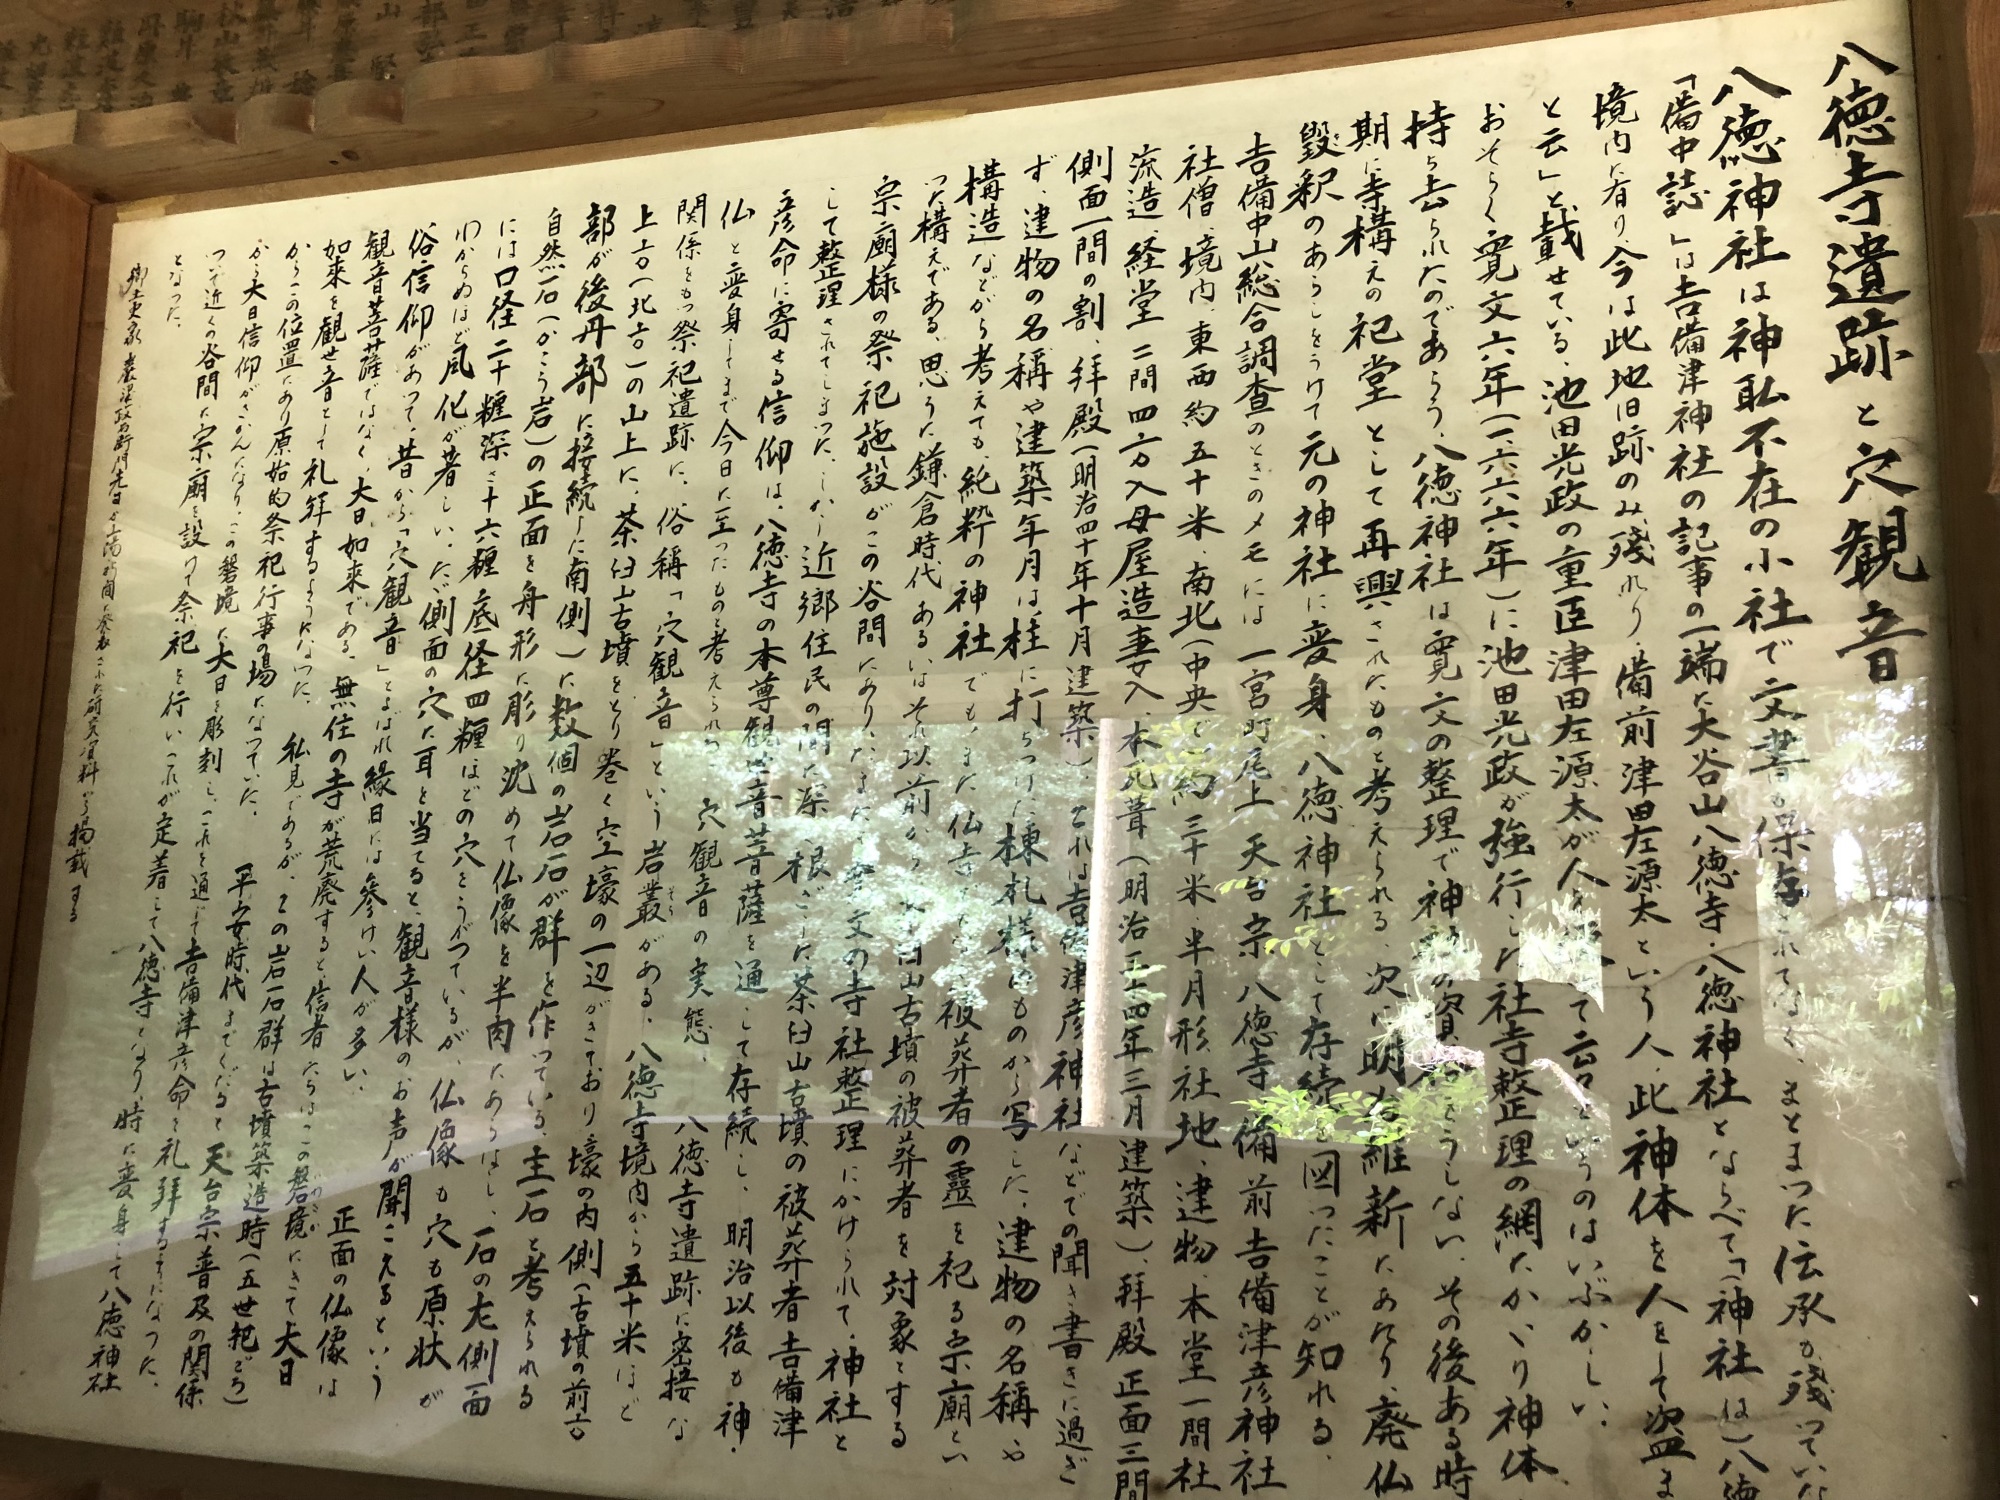 八徳寺遺跡と穴観音
八徳神社は神職不在の小社で文書も保存されてなく、まとまった伝承も残っていな
「備中誌」は吉備津神社の記事の一端に大谷山八徳寺・八徳神社とならべて「(神社は)八徳
境内に有り、今は此地旧跡のみ残れり、備前津田左源太という人、此神体を人をして盗ま
と云」と載せている。池田光政の重臣津田左源太が人を して云々というのはいぶかしい。
おそらく寛文六年(一六六六年)に池田光政が強行した社寺整理の網にかゝり神体
持ち去られたのであろう。八徳神社は寛文の整理で神社の資 をうしない、その後ある時
期に寺構えの祀堂として再興されたものと考えられる、次に明治維新にあたり、廃仏
毀釈のあらしをうけて元の神社に変身、八徳神社として存続を図ったことが知れる、
吉備中山総合調査のときのメモには 一宮町尾上 天台宗 八徳寺 備前吉備津彦神社
社僧、境内、東西約五十米、南北(中央で)約三十米、半月形、社地、建物、本堂一間社
流造、経堂 二間四方入母屋造妻入、本瓦葺(明治三十四年三月建築)、拝殿正面三間
側面一間の割、拝殿(明治四十年十月建築)、これは吉備津彦神社などでの聞き書きに過ぎ
ず、建物の名稱や建築年月は柱に打ちつけた棟札様のものから写した、建物の名稱や
構造などから考えても、純粋の神社でも、また仏寺でもなく、被葬者の霊を祀る宗廟とい
った構えである、思うに鎌倉時代あるいはそれ以前から茶臼山古墳の被葬者を対象とする
宗廟様の祭祀施設がこの谷間にあり、たまたま寛文の寺社整理にかけられて、神社と
して整理されてしまった、しかし近郷住民の間に深く根ざした茶臼山古墳の被葬者吉備津
彦命に寄せる信仰は、八徳寺の本尊観世音菩薩を通して存続し、明治以後も神・
仏と変身してまで今日に至ったものと考えられる、 穴観音の実態、 八徳寺遺跡に密接な
関係をもつ祭祀遺跡に、俗稱「穴観音」という岩叢がある、八徳寺境内から五十米ほど
上方(北方)の山上に、茶臼山古墳をとり巻く空壕の一辺がきており壕の内側(古墳の前方
部が後円部に接続した南側)に数個の岩石が群を作っている、主石と考えられる
自然石(かこう岩)の正面を舟形に彫り沈めて仏像を半肉にあらはし、一石の左側面
には口径二十糎深さ十六糎底径四糎ほどの穴をうがっているが、仏像も穴も原状が
わからぬほど風化が著しい、たゞ側面の穴に耳を当てると、観音様のお声が聞こえるという
俗信仰があって、昔から「穴観音」とよばれ縁日には参けい人が多い、
観音菩薩ではなく、大日如来である、無住の寺が荒廃すると、信者たちはこの磐境にきて大日 正面の仏像は
如来を観世音として礼拝するようになった、 私見であるが、この岩石群は古墳築造時(五世紀ごろ)
からこの位置にあり原始的祭祀行事の場になっていた、 平安時代までくだると天台宗普及の関係
から大日信仰がさかんになり、この磐境に大日を彫刻し、これを通して吉備津彦命を礼拝するようになった、
ついで近くの谷間に宗廟を設けて祭祀を行いこれが定着して八徳寺となり、時に変身して八徳神社
となった、